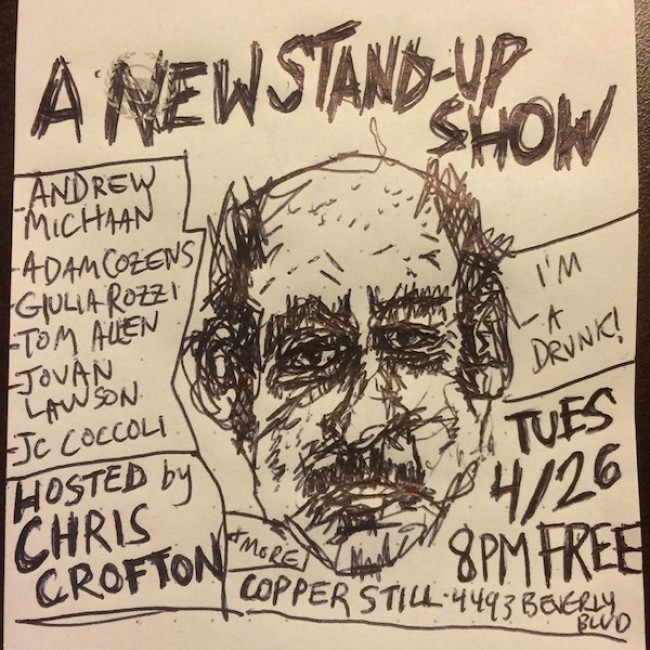 A NEW STAND-UP
SHOW
-ANDREW
MICHAAN
-ADAM COZENS
-GIULIA ROZZI
-TOM ALLEN
-JOVAN
LAWSON
-JC COCCOLI
HOSTED by
CHRIS
CROFTON
+MORE
I'M
A
DRUNK!
TUES
4/26
8PM FREE
COPPER STILL-4493 BEVERLY
BLVD